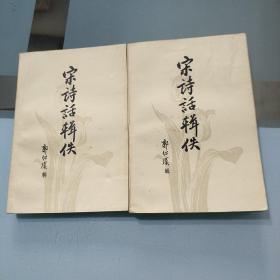 宋詩話輯佚
郭绍虞 輯
宋詩話輯佚
郭绍虞 輯